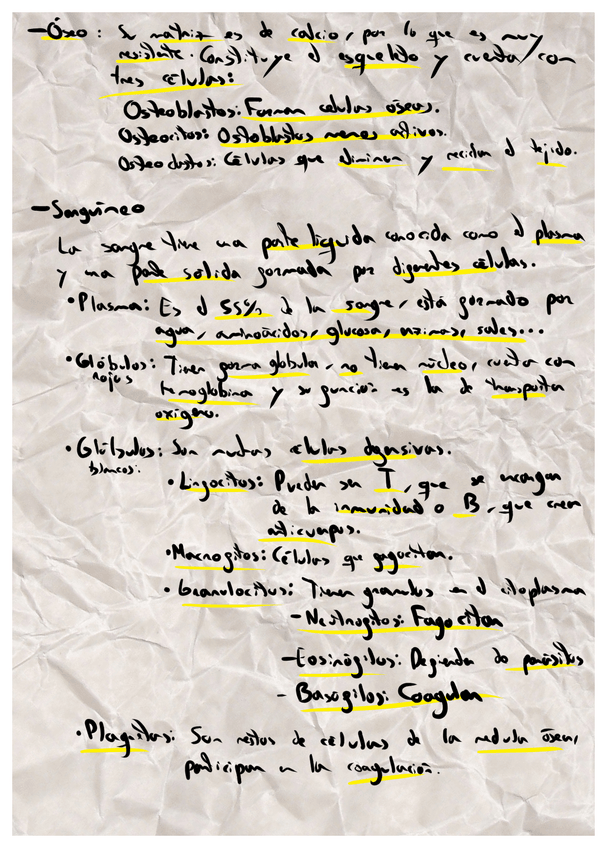 - Óseo: Su matriz es de calcio, por lo que es muy
resistente. Constituye el esqueleto y cuenta con
tres células:
Osteoblastos: Forman celulas óseas.
Osteocitos: Ostoblastos menos activos.
Osteoclastos: Células que eliminan y reciclan el tejido.
- Sanguíneo
La sangre tiene una parte líquida conocida como el plasma
y una parte solida formada por diferentes células.
• Plasma: Es el 55% de la sangre, está formado por
agua, aminoácidos, glucosa, enzimas, sales...
• Glóbulos rojos: Tienen forma globular, no tienen núcleo, cuenta con
hemoglobina y su función es la de transportar
oxígeno.
• Glóbulos blancos: Son muchas células defensivas.
• Linfocitos: Pueden ser T, que se encargan
de la inmunidad o B, que crean
anticuerpos.
• Macrofitos: Células que fagocitan.
• Granulocitos: Tienen granulos en el citoplasma
- Neutrofitos: Fagocitan
- Eosinófilos: Defienda de parásitos
- Basófilos: Coagulan
• Plaquetas: Son restos de células de la medula ósea,
participan en la coagulación.